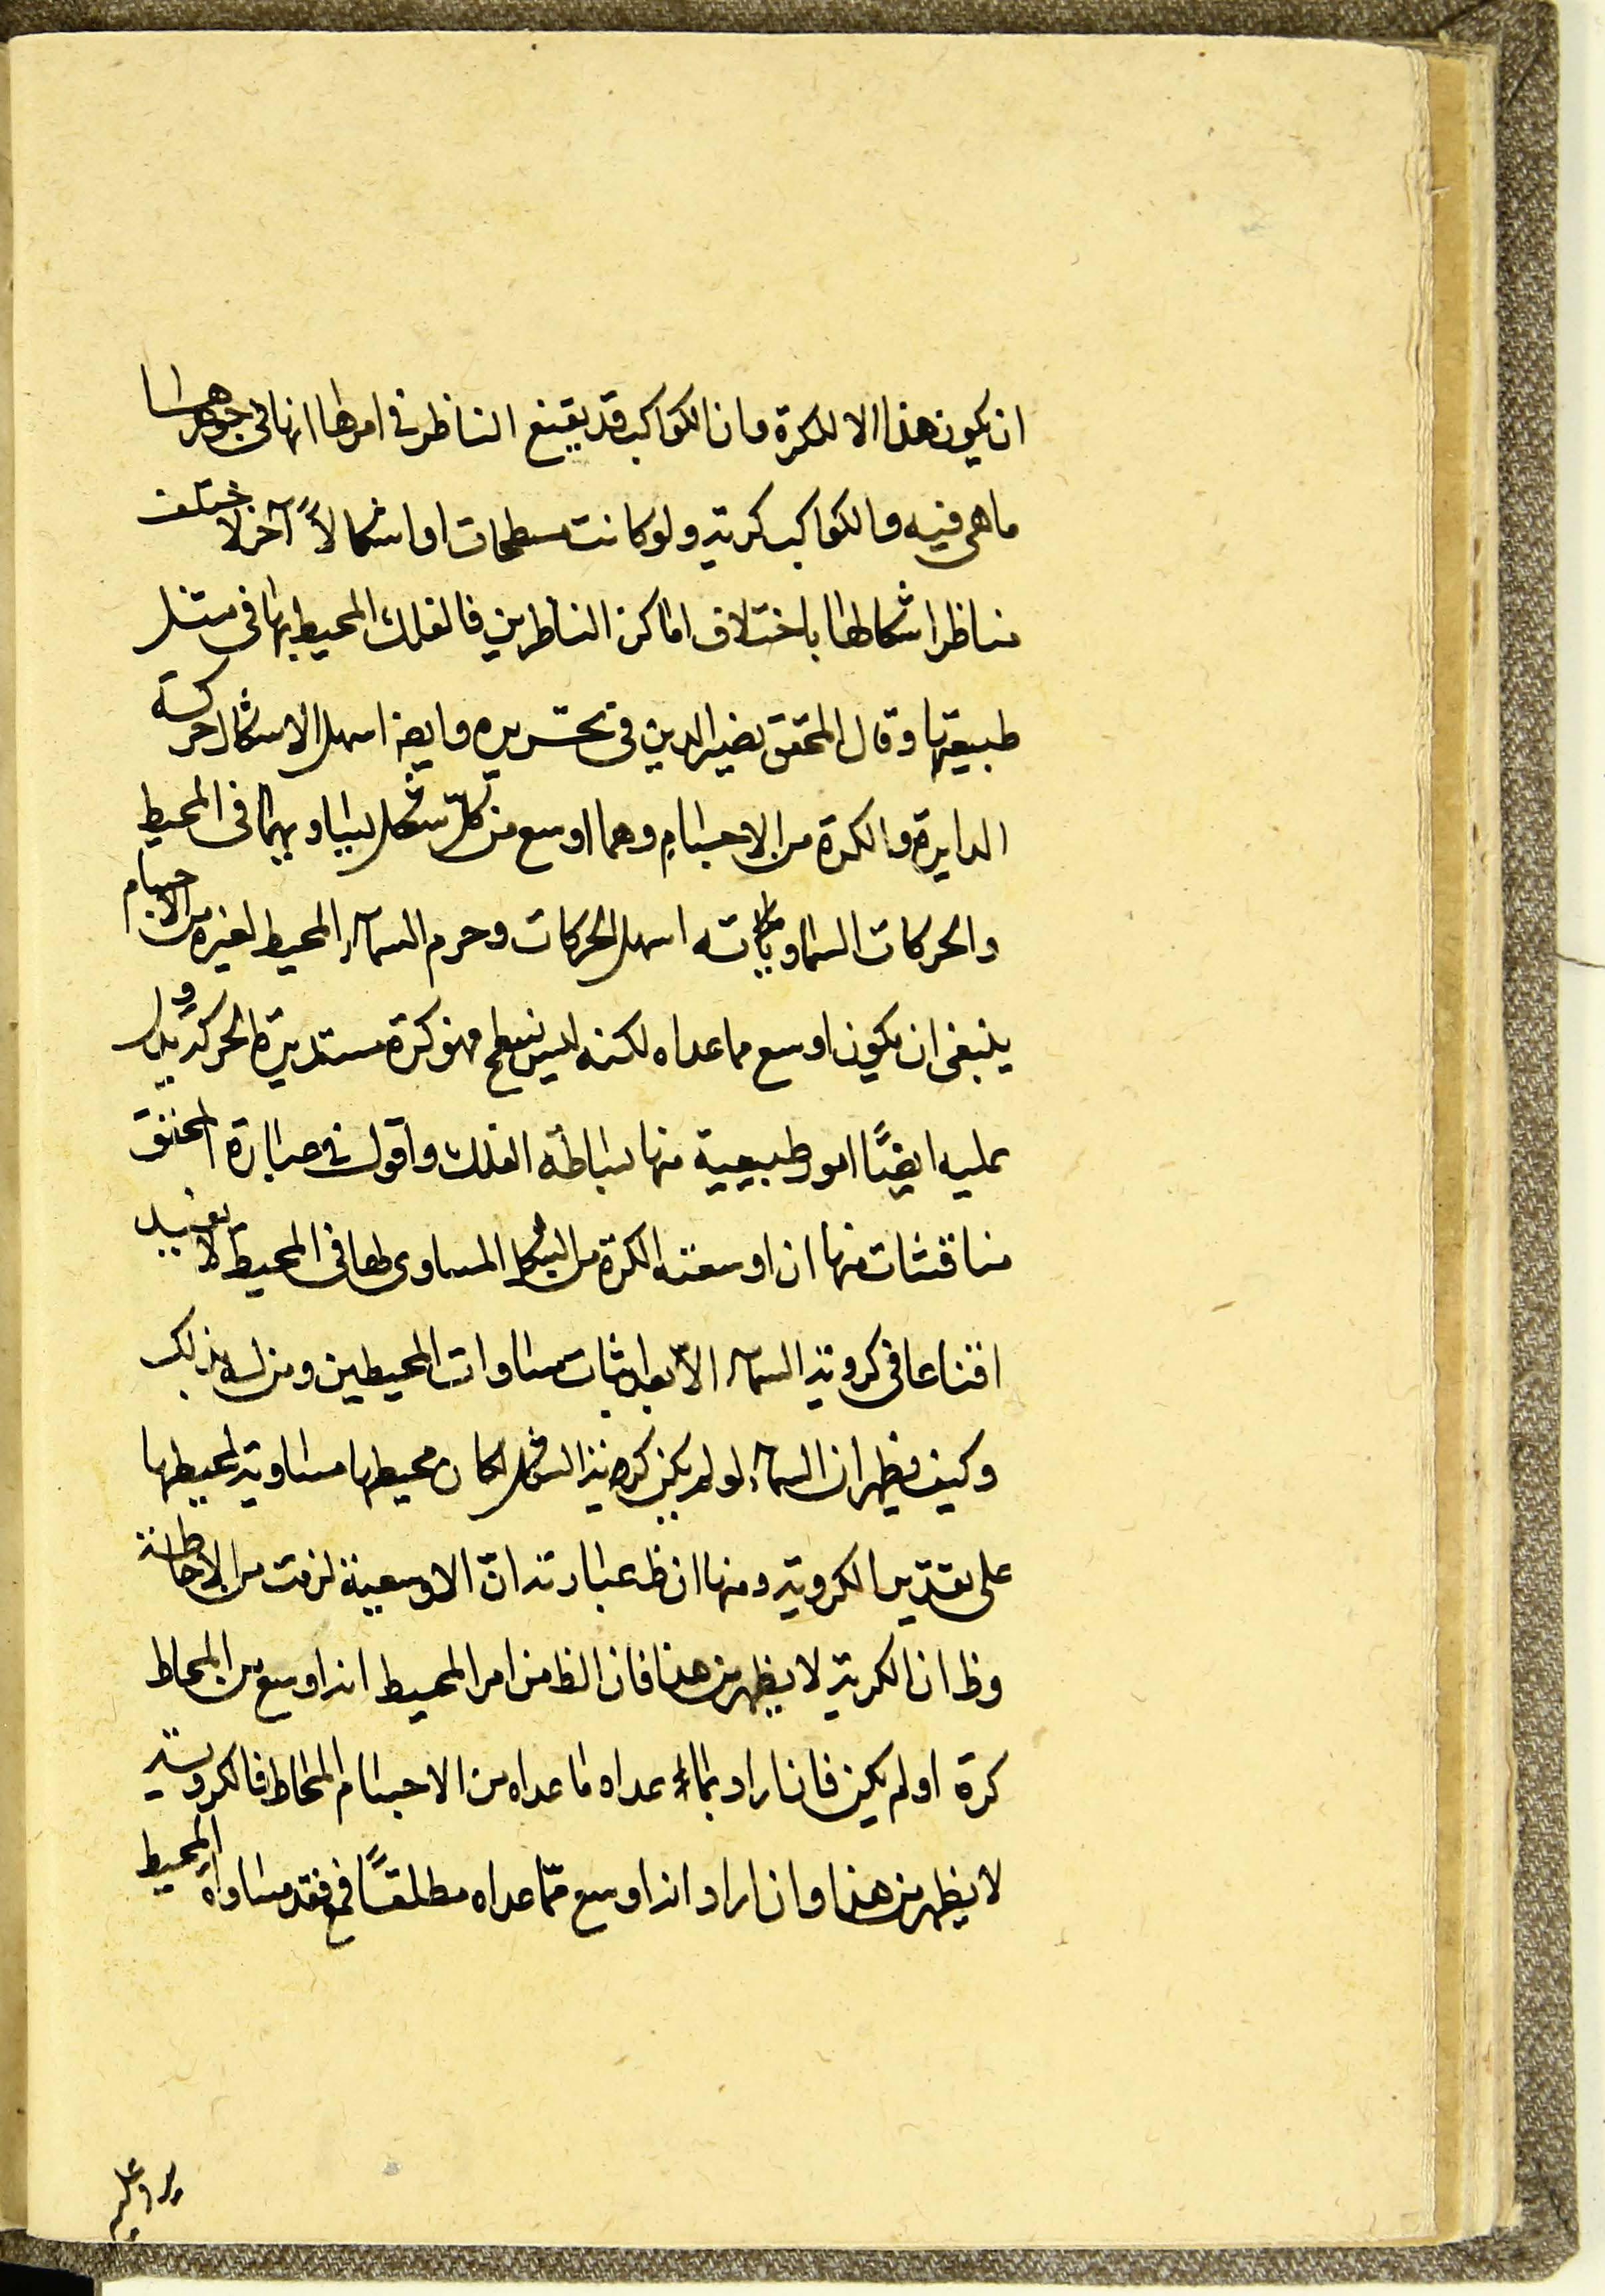 ان يكون هذا الا للكرة وان الكواكب قد يقنع الناظر في امرها انها في جوهرها
ما هي فيه والكواكب كرية ولو كانت مسطحات او اشكالاً آخر لاختلف
مناظر اشكالها باختلاف اماكن الناظرين فالفلك المحيط بها في مثل
طبيعتها وقال المحقق نصير الدين في تحريره وايضا اسهل الاشكال حركة
الدايرة والكرة من الاجسام وهما اوسع من كل شكل يساويهما في المحيط
والحركات السماويات اسهل الحركات وجرم السماء المحيط لغيره من الاجسام
ينبغي ان يكون اوسع مما عداه لكنه ليس بسطح فهو كرة مستديرة الحركة ويدل
عليه ايضًا امور طبيعية منها بساطة الفلك واقول في عبارة المحقق
مناقشات منها ان اوسعية الكرة من الشكل المساوى لها في المحيط لا يفيد
اقناعا في كروية السماء الا بعد اثبات مساوات المحيطين ومن له بذلك
وكيف يظهر ان السماء لو لم يكن كروية الشكل لكان محيطها مساوية لمحيطها
على تقدير الكروية ومنها ان ظ عبارته ان الاوسعية لزمت من الاحاطة
وظ ان الكرية لا يظهر من هذا فان الظ من امر المحيط انه اوسع من المحاط
كرة او لم يكن فان اراد بما عداه ما عداه من الاجسام المحاط فالكروية
لا يظهر من هذا وان اراد انه اوسع مما عداه مطلقًا فمع فقد مساواة المحيط
يرد عليه